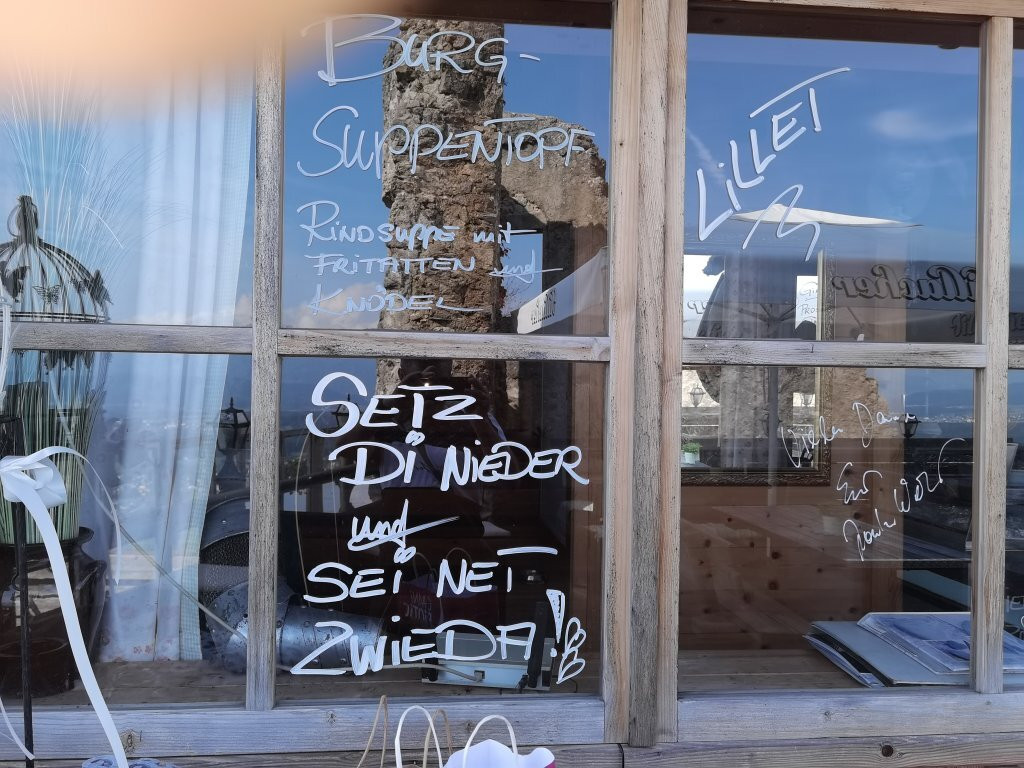 BURG-
SUPPENTOPF
RINDSUPPE mit
FRITATTEN und
KNÖDEL
SETZ
DI NIEDER
und
SEI NET
ZWIEDA!
LILLET
Vielen Dank